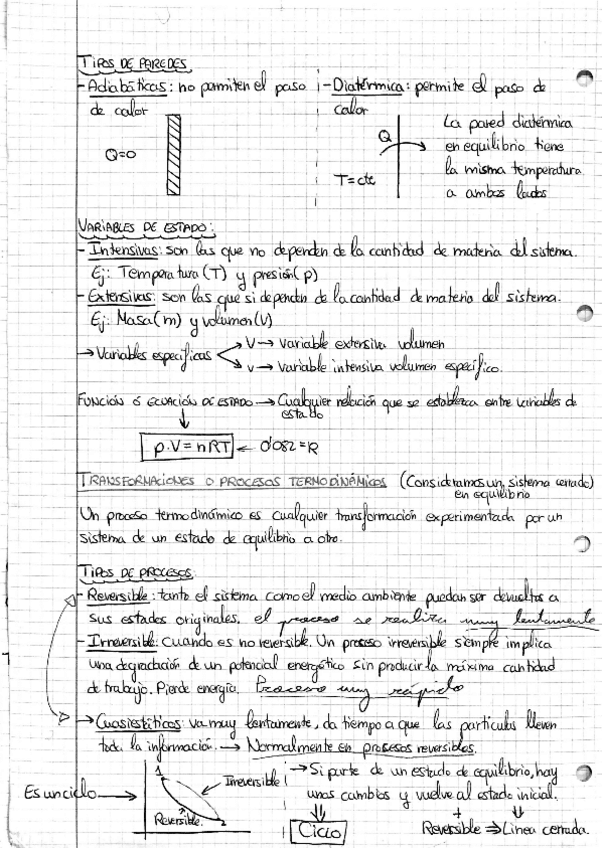 TIPOS DE PAREDES
- Adiabáticas: no permiten el paso
de calor
Q=0
- Diatérmica: permite el paso de
calor
Q
T=cte
La pared diatérmica
en equilibrio tiene
la misma temperatura
a ambos lados
VARIABLES DE ESTADO:
- Intensivas: son las que no dependen de la cantidad de materia del sistema.
Ej: Temperatura (T) y presión (p)
- Extensivas: son las que si dependen de la cantidad de materia del sistema.
Ej: Masa (m) y volumen (V)
→ Variables específicas
V → variable extensiva volumen
v → variable intensiva volumen específico.
FUNCIÓN Ó ECUACIÓN DE ESTADO → Cualquier relación que se establezca entre variables de
estado
p.V = nRT ← 0'082 = R
TRANSFORMACIONES O PROCESOS TERMODINÁMICOS (Consideramos un sistema cerrado)
en equilibrio
Un proceso termodinámico es cualquier transformación experimentada por un
sistema de un estado de equilibrio a otro.
TIPOS DE PROCESOS
- Reversible: tanto el sistema como el medio ambiente puedan ser devueltos a
sus estados originales. el proceso se realiza muy lentamente
- Irreversible: Cuando es no reversible. Un proceso irreversible siempre implica
una degradación de un potencial energético sin producir la máxima cantidad
de trabajo. Pierde energía. Proceso muy rápido
→ Cuasiestáticos: va muy lentamente, da tiempo a que las partículas lleven
toda la información. → Normalmente en procesos reversibles.
Es un ciclo →
1
Irreversible
Reversible.
2
→ Si parte de un estado de equilibrio, hay
unos cambios y vuelve al estado inicial.
Ciclo
Reversible ⇒ Linea cerrada.